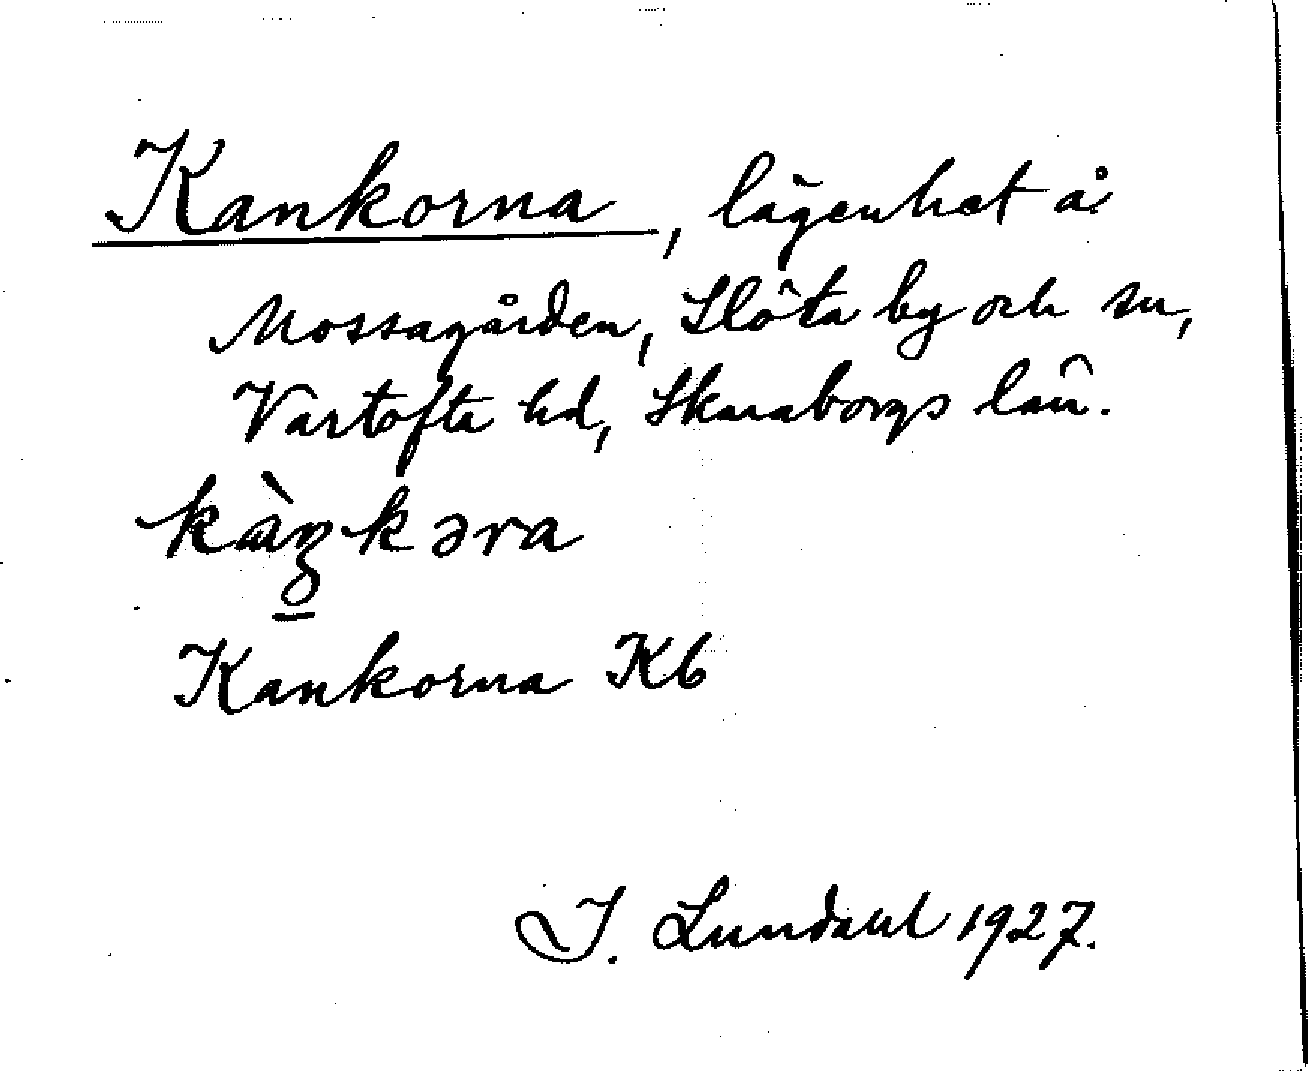 Kankorna, lägenhet å
Mossagården, Slöta by och sn,
Vartofta hd, Skaraborgs län.
kàŋkəra
Kankorna Kb
I. Lundahl 1927.